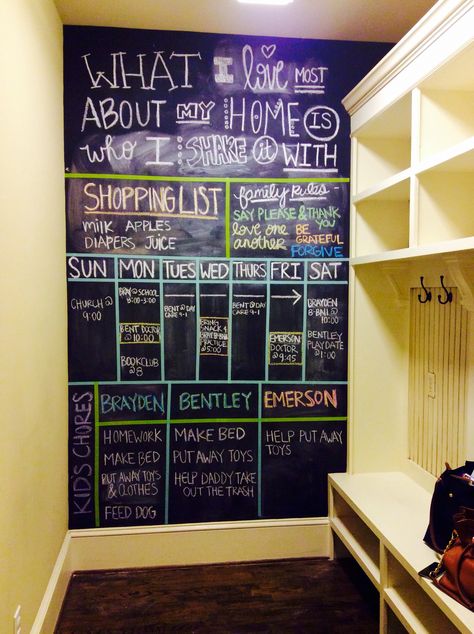 WHAT I love MOST
ABOUT MY HOME IS
who I SHAKE it WITH
SHOPPING LIST
milk APPLES
DIAPERS JUICE
family RULES
SAY PLEASE & THANK YOU
love one another
BE GRATEFUL
FORGIVE
SUN MON TUES WED THURS FRI SAT
CHURCH @ 9:00
BRAY @ SCHOOL
BENT DOCTOR @ 10:00
BOOKCLUB @ 8
BENT @ DAY CARE 9-1
BRING SNACK 4
PRACTICE @ 5:00
BENT @ DAY CARE 9-1
EMERSON DOCTOR @ 9:45
BRAYDEN
@ 10:00
BENTLEY PLAYDATE @ 1:00
KID'S CHORES
BRAYDEN BENTLEY EMERSON
HOMEWORK
MAKE BED
PUT AWAY TOYS & CLOTHES
FEED DOG
MAKE BED
PUT AWAY TOYS
HELP DADDY TAKE OUT THE TRASH
HELP PUT AWAY TOYS